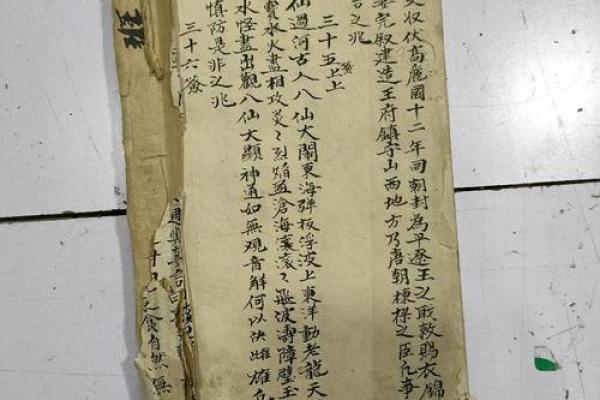 収伏高麗國十二年回朝封為平遼王之職敕賜衣錦
殿建造王府鎮守山西地方乃唐朝棟樑之臣凡事
吉之兆
三十五簽上上
仙過河古人八仙大鬧東海弹板浮波上東洋動老龍天
寳水火盡相攻炎〻烈焰盈滄海滾〻飛波濤障璧玉
水怪盡出觀八仙大顯神通如無观音解何以决雌雄凡
慎防是非之兆
三十六簽
之食自然無
班